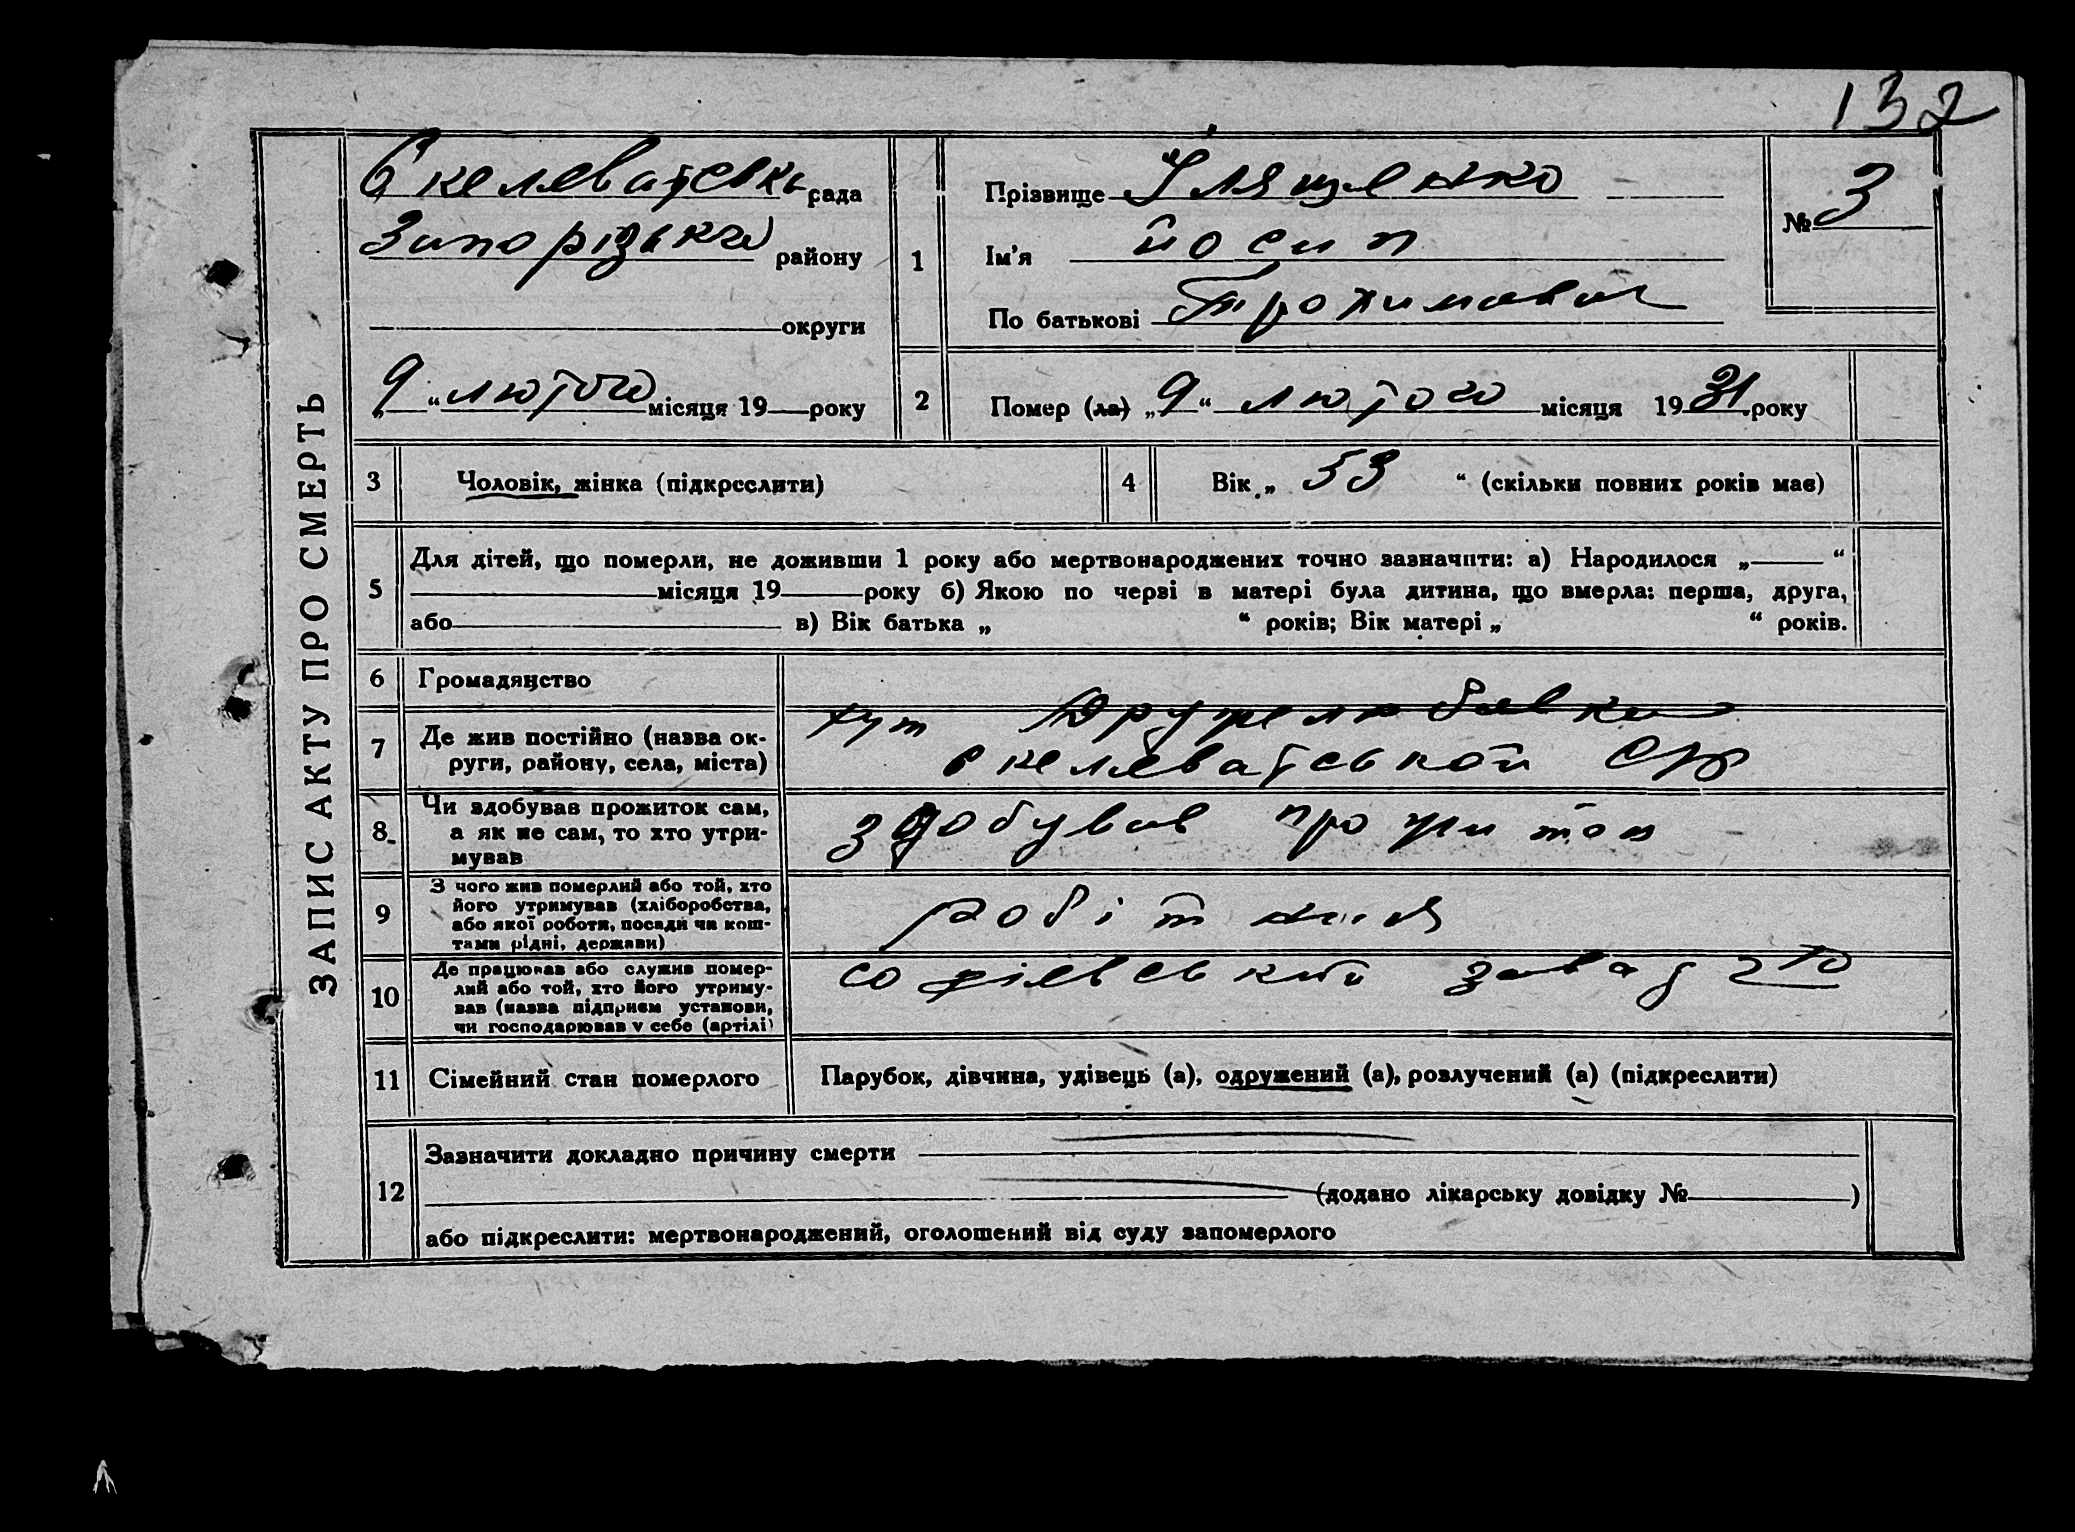 132
Скелеватськ рада
Запорізького району
округи
„9“ лютого місяця 19 року
ЗАПИС АКТУ ПРО СМЕРТЬ
1
Прізвище Ілященко
Ім'я Йосип
По батькові Трохимович
№ 3
2
Помер (ла) „9“ лютого місяця 1931 року
3
Чоловік, жінка (підкреслити)
4
Вік „ 53 “ (скільки повних років має)
5
Для дітей, що померли, не доживши 1 року або мертвонароджених точно зазначити: а) Народилося „ “
місяця 19 року б) Якою по черзі в матері була дитина, що вмерла: перша, друга,
або в) Вік батька „ “ років; Вік матері „ “ років.
6
Громадянство
7
Де жив постійно (назва ок-
руги, району, села, міста)
хут Дружелюбавки
скелеватської с/р
8
Чи здобував прожиток сам,
а як не сам, то хто утри-
мував
здобував прожиток
9
З чого жив померлий або той, хто
його утримував (хліборобства,
або якої роботи, посади чи кош-
тами рідні, держави)
робітник
10
Де працював або служив помер-
лий або той, хто його утриму-
вав (назва підприєм установи,
чи господарював у себе (артілі)
софіевський завод
11
Сімейний стан померлого
Парубок, дівчина, удівець (а), одружений (а), розлучений (а) (підкреслити)
12
Зазначити докладно причину смерти
(додано лікарську довідку № )
або підкреслити: мертвонароджений, оголошений від суду запомерлого